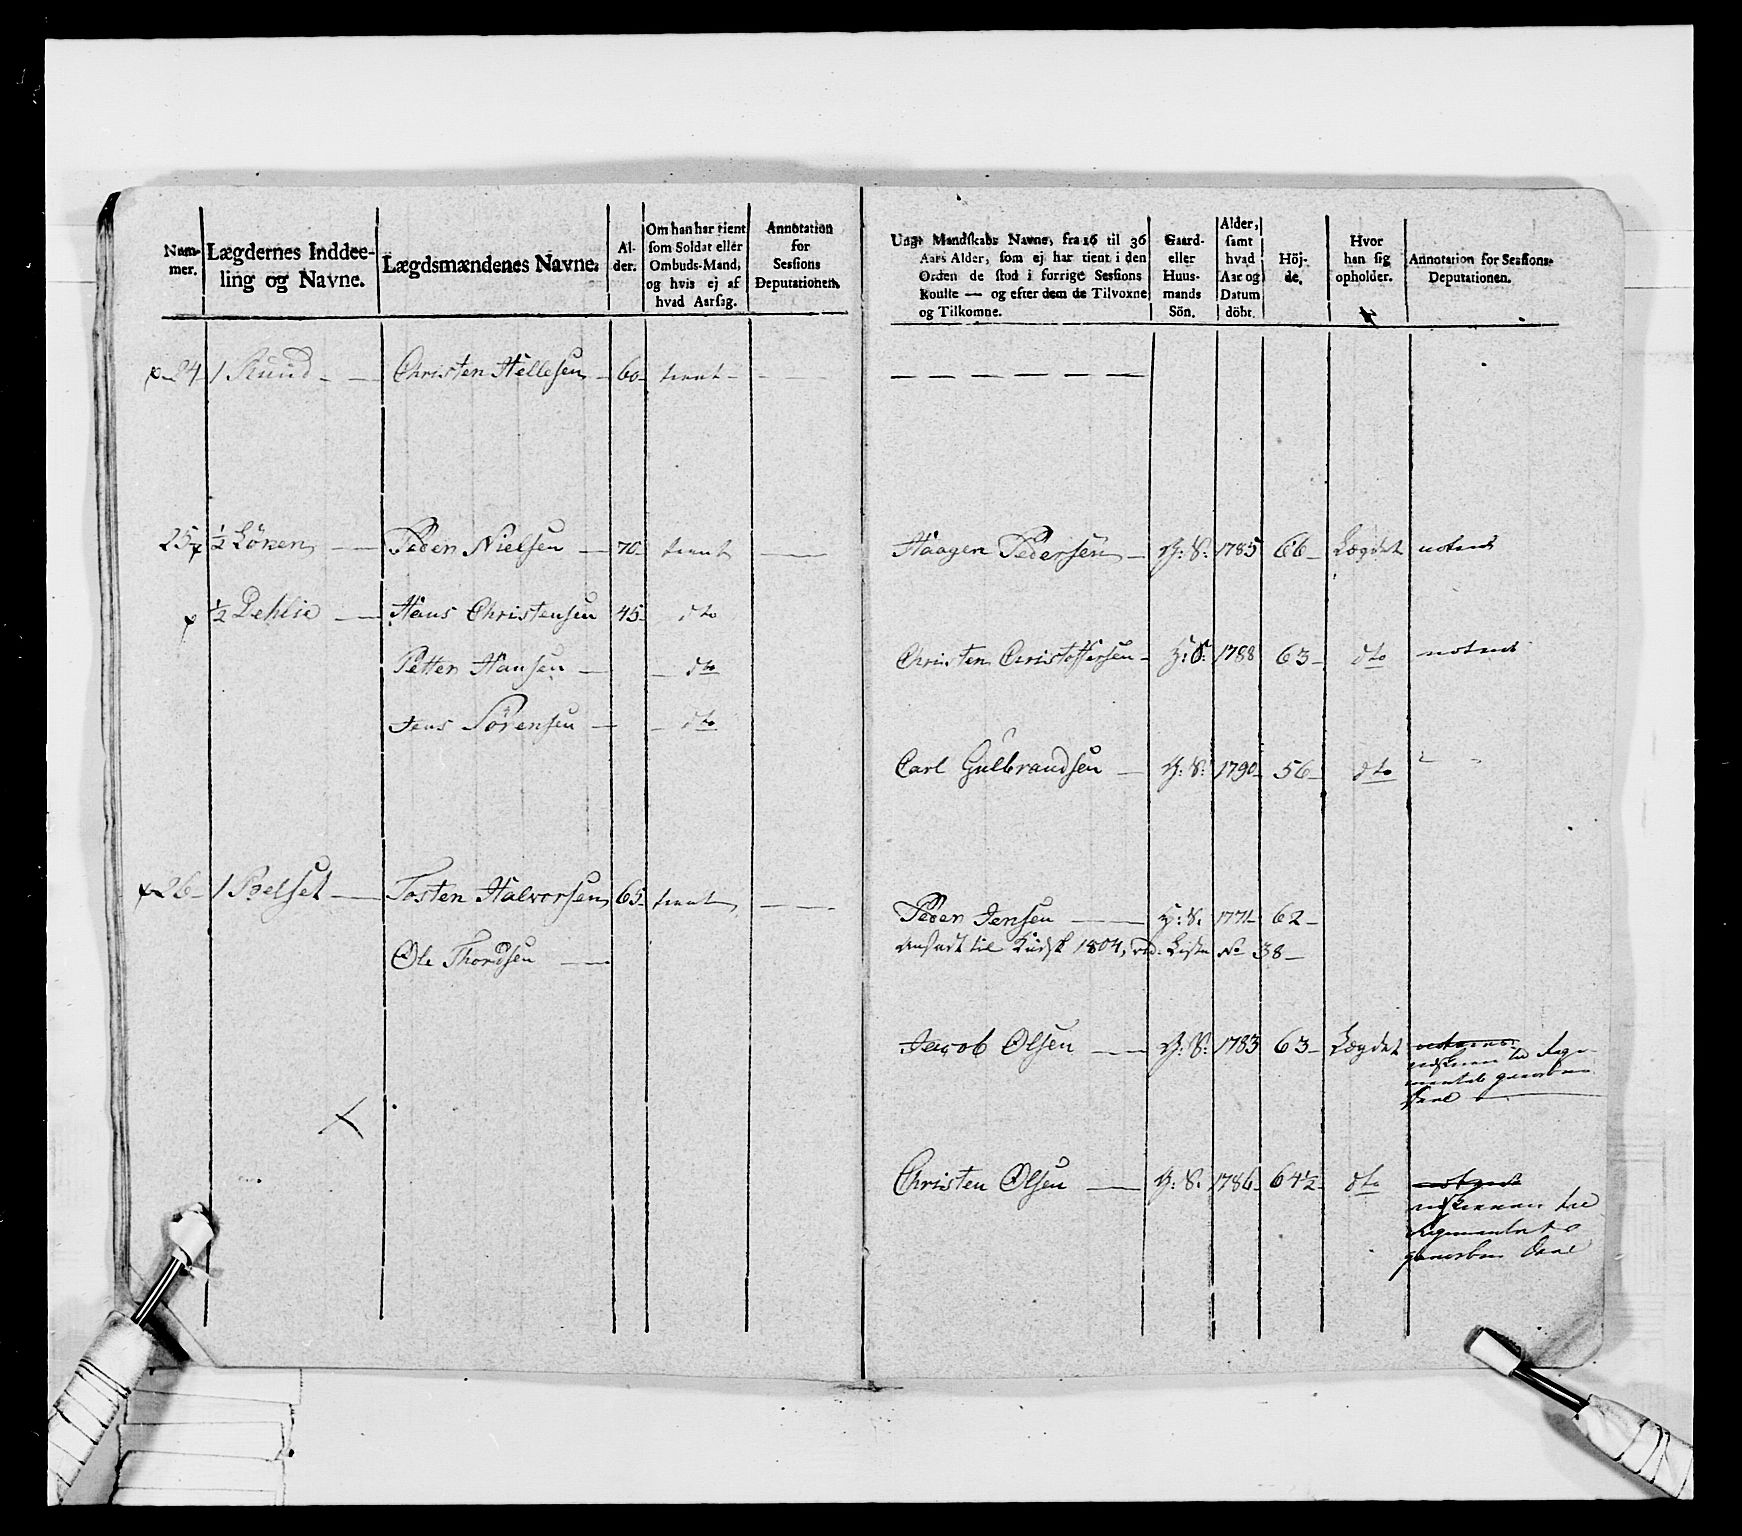 Num-
mer.
Lægdernes Inddee-
ling og Navne.
Lægdsmændenes Navne.
Al-
der.
Om han har tient
som Soldat eller
Ombuds-Mand,
og hvis ej af
hvad Aarsag.
Annotation
for
Sessions
Deputationen.
24 1 Ruud — Christen Hellesen 60 tient —
25 ½ Lönen — Peder Nielsen — 70 tient —
½ Dehlie — Hans Christensen 45 dto
Petter Hansen — dto
Jens Sörensen — dto
26 1 Poelset — Tosten Halvorsen 65 tient —
Ole Thordsen —
Ungt Mandskabs Navne, fra 16 til 36
Aars Alder, som ej har tient i den
Orden de stod i forrige Sessions
Roulle — og efter dem de Tilvoxne
og Tilkomne.
Gaard-
eller
Huus-
mands
Sön.
Alder,
samt
hvad
Aar og
Datum
döbt.
Höj-
de.
Hvor
han sig
opholder.
Annotation for Sessions-
Deputationen.
Haagen Pedersen — G: S: 1785 66 Lægdet noteret
Christen Christoffersen H: S: 1788 63 dto noteret
Carl Gulbrandsen — H: S: 1790 56 dto
Peder Jensen — H: S. 1771 62
ansadt til Kudsk 1804, vid. Liste No 38
Jacob Olsen — G: S: 1783 63 Lægdet
Christen Olsen — H: S. 1786 64½ dto noteret